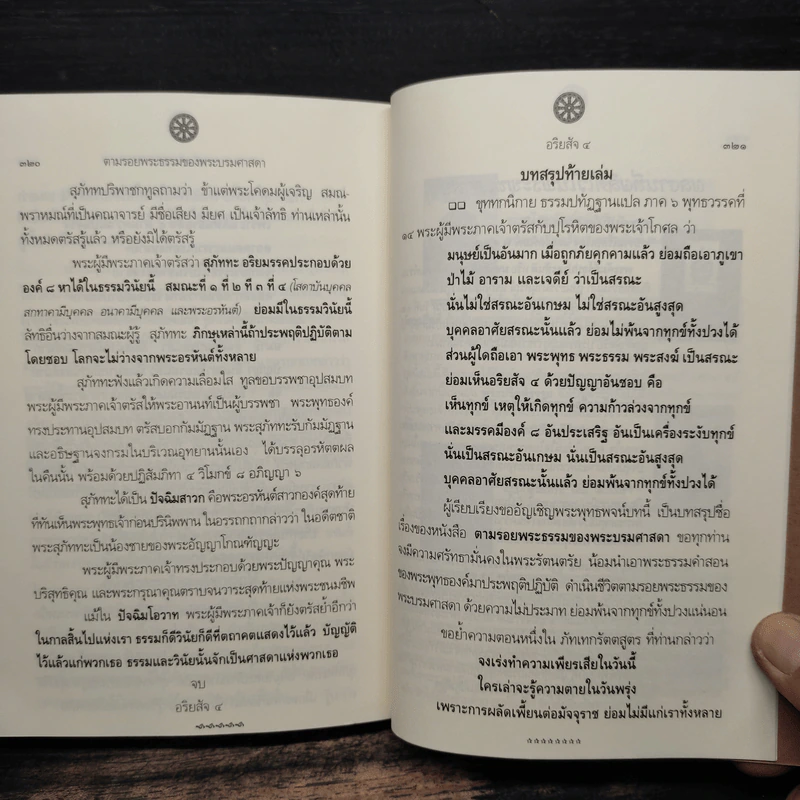 ๓๒๐ ตามรอยพระธรรมของพระบรมศาสดา
สุภัททปริพาชกทูลถามว่า ข้าแต่พระโคดมผู้เจริญ สมณ-
พราหมณ์ที่เป็นคณาจารย์ มีชื่อเสียง มียศ เป็นเจ้าลัทธิ ท่านเหล่านั้น
ทั้งหมดตรัสรู้แล้ว หรือยังมิได้ตรัสรู้
พระผู้มีพระภาคเจ้าตรัสว่า สุภัททะ อริยมรรคประกอบด้วย
องค์ ๘ หาได้ในธรรมวินัยนี้ สมณะที่ ๑ ที่ ๒ ที่ ๓ ที่ ๔ (โสดาบันบุคคล
สกทาคามีบุคคล อนาคามีบุคคล และพระอรหันต์) ย่อมมีในธรรมวินัยนี้
ลัทธิอื่นว่างจากสมณะผู้รู้ สุภัททะ ภิกษุเหล่านี้ถ้าประพฤติปฏิบัติตาม
โดยชอบ โลกจะไม่ว่างจากพระอรหันต์ทั้งหลาย
สุภัททะฟังแล้วเกิดความเลื่อมใส ทูลขอบรรพชาอุปสมบท
พระผู้มีพระภาคเจ้าตรัสให้พระอานนท์เป็นผู้บรรพชา พระพุทธองค์
ทรงประทานอุปสมบท ตรัสบอกกัมมัฏฐาน พระสุภัททะรับกัมมัฏฐาน
และอธิษฐานจงกรมในบริเวณอุทยานนั้นเอง ได้บรรลุอรหัตตผล
ในคืนนั้น พร้อมด้วยปฏิสัมภิทา ๔ วิโมกข์ ๘ อภิญญา ๖
สุภัททะได้เป็น ปัจฉิมสาวก คือพระอรหันต์สาวกองค์สุดท้าย
ที่ทันเห็นพระพุทธเจ้าก่อนปรินิพพาน ในอรรถกถากล่าวว่า ในอดีตชาติ
พระสุภัททะเป็นน้องชายของพระอัญญาโกณฑัญญะ
พระผู้มีพระภาคเจ้าทรงประกอบด้วยพระปัญญาคุณ พระ
บริสุทธิคุณ และพระกรุณาคุณตราบจนวาระสุดท้ายแห่งพระชนมชีพ
แม้ใน ปัจฉิมโอวาท พระผู้มีพระภาคเจ้าก็ยังตรัสย้ำอีกว่า
ในกาลสิ้นไปแห่งเรา ธรรมก็ดีวินัยก็ดีที่ตถาคตแสดงไว้แล้ว บัญญัติ
ไว้แล้วแก่พวกเธอ ธรรมและวินัยนั้นจักเป็นศาสดาแห่งพวกเธอ
จบ
อริยสัจ ๔
อริยสัจ ๔ ๓๒๑
บทสรุปท้ายเล่ม
ขุททกนิกาย ธรรมปทัฏฐานแปล ภาค ๖ พุทธวรรคที่
๑๔ พระผู้มีพระภาคเจ้าตรัสกับปุโรหิตของพระเจ้าโกศล ว่า
มนุษย์เป็นอันมาก เมื่อถูกภัยคุกคามแล้ว ย่อมถือเอาภูเขา
ป่าไม้ อาราม และเจดีย์ ว่าเป็นสรณะ
นั่นไม่ใช่สรณะอันเกษม ไม่ใช่สรณะอันสูงสุด
บุคคลอาศัยสรณะนั้นแล้ว ย่อมไม่พ้นจากทุกข์ทั้งปวงได้
ส่วนผู้ใดถือเอา พระพุทธ พระธรรม พระสงฆ์ เป็นสรณะ
ย่อมเห็นอริยสัจ ๔ ด้วยปัญญาอันชอบ คือ
เห็นทุกข์ เหตุให้เกิดทุกข์ ความก้าวล่วงจากทุกข์
และมรรคมีองค์ ๘ อันประเสริฐ อันเป็นเครื่องระงับทุกข์
นั่นเป็นสรณะอันเกษม นั่นเป็นสรณะอันสูงสุด
บุคคลอาศัยสรณะนั้นแล้ว ย่อมพ้นจากทุกข์ทั้งปวงได้
ผู้เรียบเรียงขออัญเชิญพระพุทธพจน์บทนี้ เป็นบทสรุปชื่อ
เรื่องของหนังสือ ตามรอยพระธรรมของพระบรมศาสดา ขอทุกท่าน
จงมีความศรัทธามั่นคงในพระรัตนตรัย น้อมนำเอาพระธรรมคำสอน
ของพระพุทธองค์มาประพฤติปฏิบัติ ดำเนินชีวิตตามรอยพระธรรมของ
พระบรมศาสดา ด้วยความไม่ประมาท ย่อมพ้นจากทุกข์ทั้งปวงแน่นอน
ขอย้ำความตอนหนึ่งใน ภัทเทกรัตตสูตร ที่ท่านกล่าวว่า
จงเร่งทำความเพียรเสียในวันนี้
ใครเล่าจะรู้ความตายในวันพรุ่ง
เพราะการผลัดเพี้ยนต่อมัจจุราช ย่อมไม่มีแก่เราทั้งหลาย